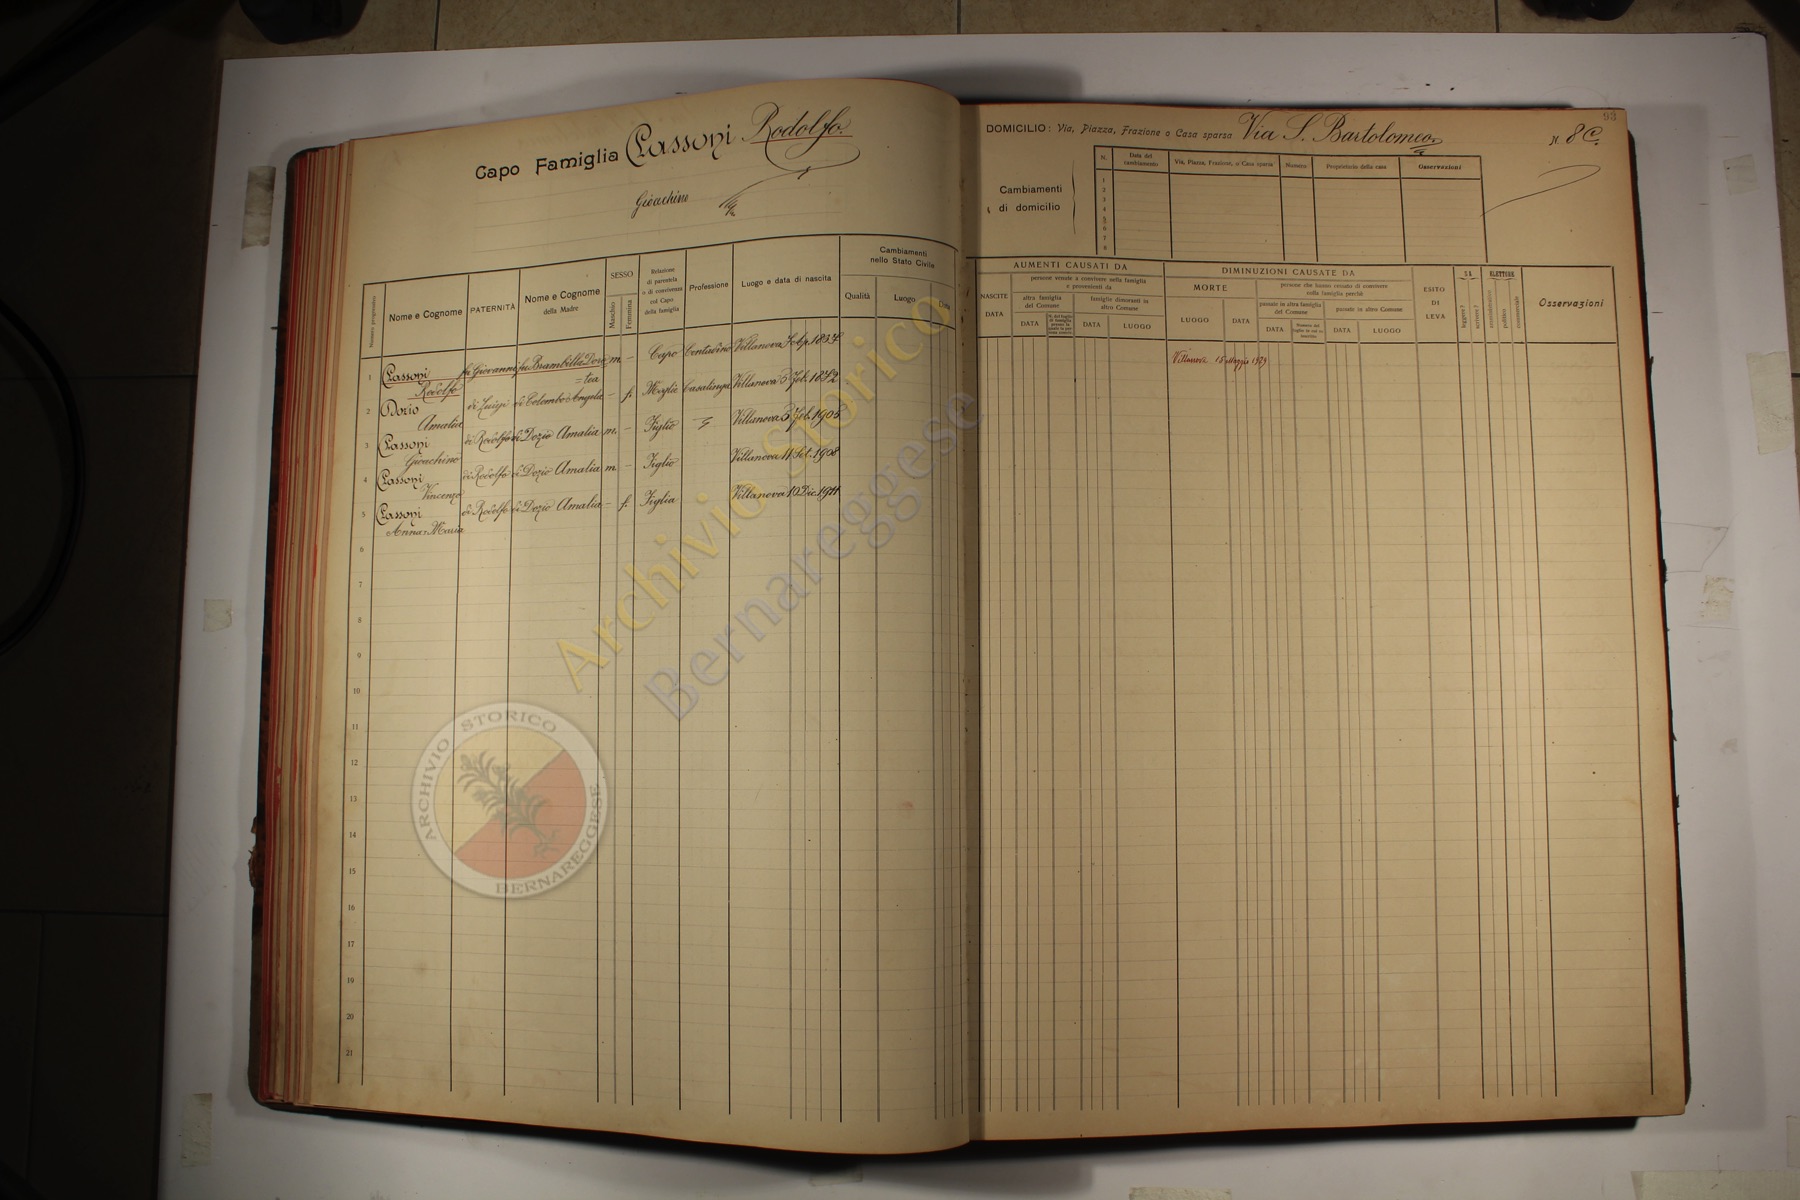 Capo Famiglia Passoni Rodolfo.
Gioachino
Numero progressivo
Nome e Cognome
PATERNITÀ
Nome e Cognome
della Madre
SESSO
Maschio
Femmina
Relazione
di parentela
o di convivenza
col Capo
della famiglia
Professione
Luogo e data di nascita
Cambiamenti
nello Stato Civile
Qualità
Luogo
Data
1 Passoni fu Giovanni fu Brambilla Doro m. – Capo Contadino Villanova
Rodolfo =tea
2 Dozio di Luigi di Colombo Angela – f. Moglie Casalinga Villanova 3 Feb. 1882
Amalia
3 Passoni di Rodolfo di Dozio Amalia m. – Figlio Villanova 3 Feb. 1905
Gioachino
4 Passoni di Rodolfo di Dozio Amalia m. – Figlio Villanova 11 Set. 1908
Vincenzo
5 Passoni di Rodolfo di Dozio Amalia – f. Figlia Villanova 10 Dic. 1911
Anna Maria
6
7
8
9
10
11
12
13
14
15
16
17
18
19
20
21
93
DOMICILIO: Via, Piazza, Frazione o Casa sparsa Via S. Bartolomeo N. 8 C.
Cambiamenti
di domicilio
N.
Data del
cambiamento
Via, Piazza, Frazione, o Casa sparsa
Numero
Proprietario della casa
Osservazioni
1
2
3
4
5
6
7
8
AUMENTI CAUSATI DA
NASCITE
DATA
persone venute a convivere nella famiglia
e provenienti da
altra famiglia
del Comune
DATA
famiglie dimoranti in
altro Comune
DATA
LUOGO
DIMINUZIONI CAUSATE DA
MORTE
LUOGO
DATA
persone che hanno cessato di convivere
nella famiglia perchè
passate in altra famiglia
del Comune
DATA
passate in altro Comune
DATA
LUOGO
ESITO
DI
LEVA
SA
leggere?
scrivere?
ELETTORE
amministrativo
politico
commerciale
Osservazioni
Villanova 15 Maggio 1929
Archivio Storico
Bernareggese
ARCHIVIO STORICO
BERNAREGGESE